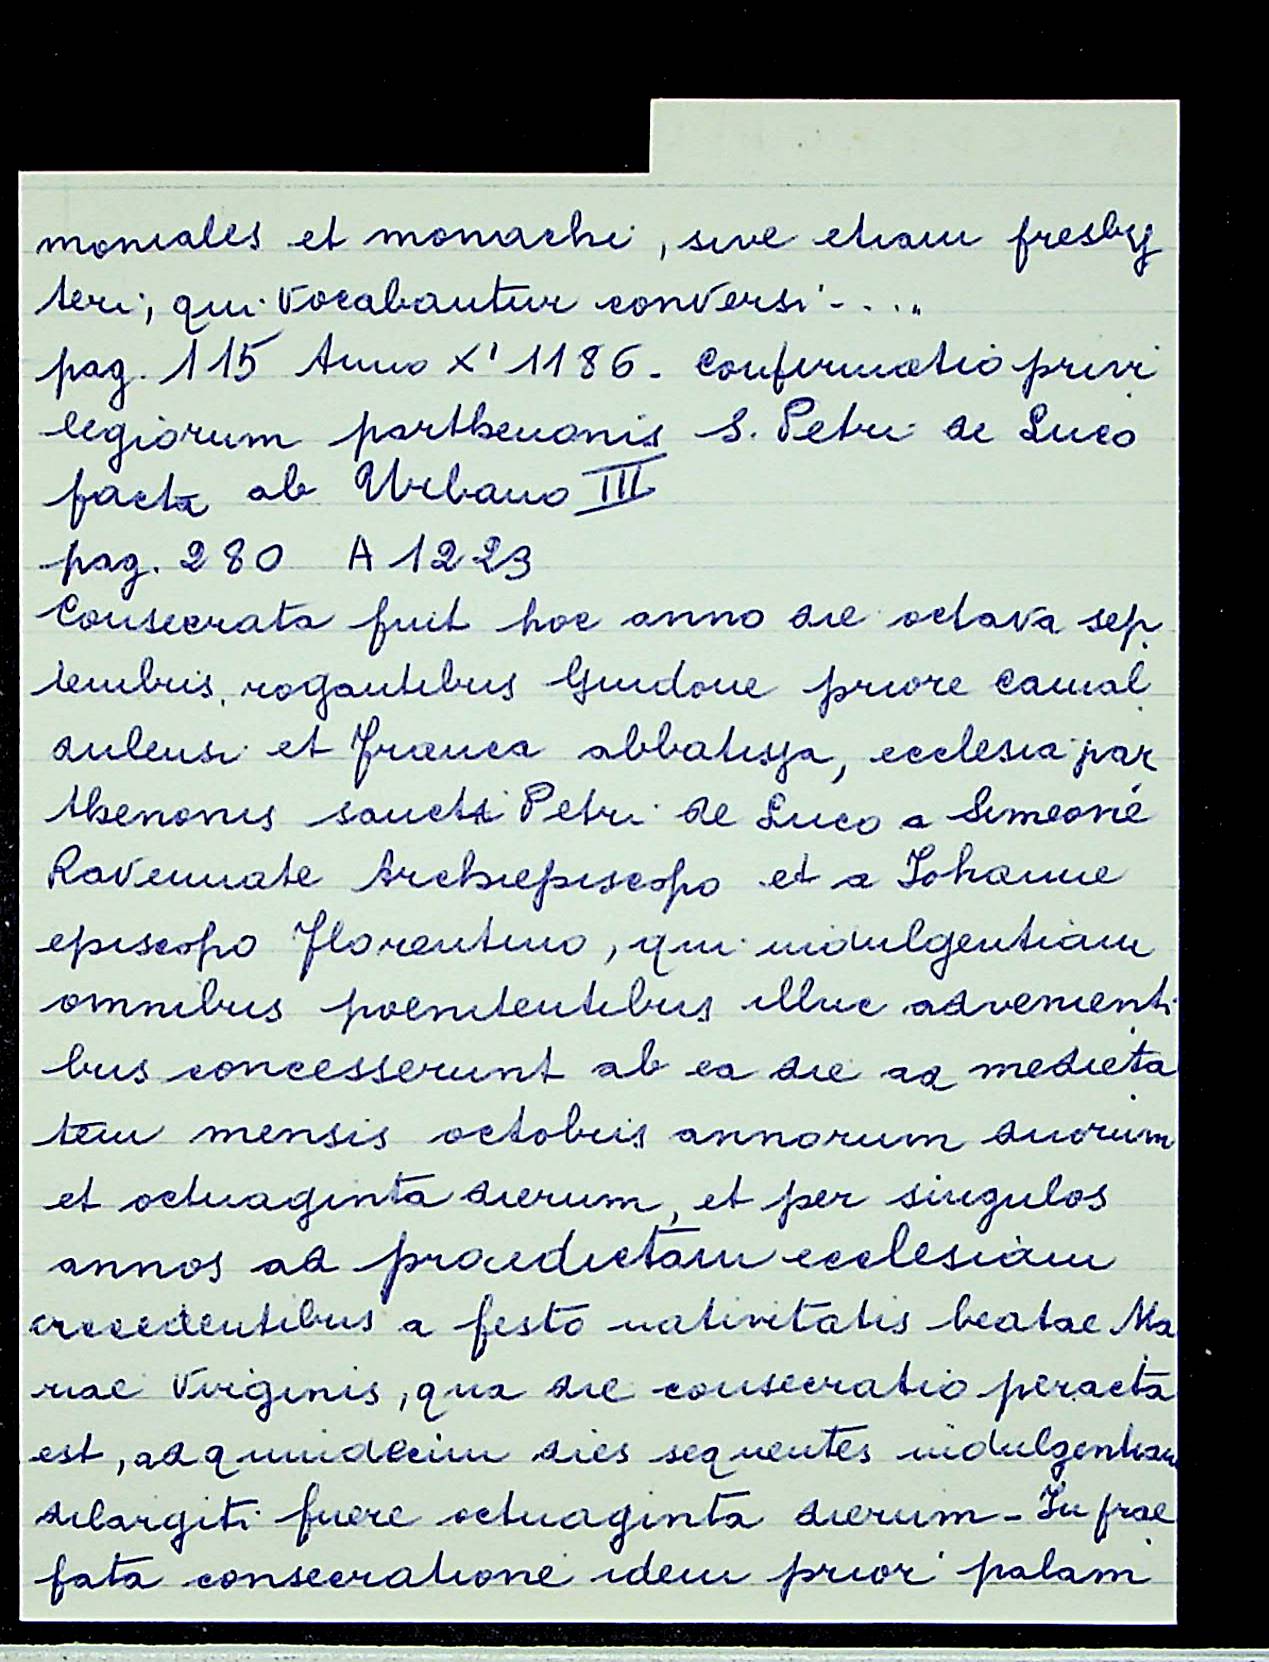 moniales et monachi, sive etiam presby
teri, qui vocabantur conversi - ....
pag. 115 Anno X' 1186 - Confirmatio privi
legiorum parthenonis S. Petri de Luco
facta ab Urbano III
pag. 280 A 1223
Consecrata fuit hoc anno die octava sep
tembris, rogantibus Guidone priore Camal
dulensi et Franca abbatissa, ecclesia par
thenonis sancti Petri de Luco a Simeone
Ravennate Archiepiscopo et a Johanne
episcopo Florentino, qui indulgentiam
omnibus poenitentibus illuc advenienti
bus concesserunt ab ea die ad medieta
tem mensis octobris annorum duorum
et octuaginta dierum, et per singulos
annos ad praedictam ecclesiam
accedentibus a festo nativitatis beatae Ma
riae Virginis, qua die consecratio peracta
est, ad quindecim dies sequentes indulgentiam
dilargiti fuere octuaginta dierum - In prae
fata consecratione idem prior palam